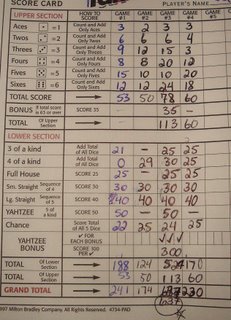 SCORE CARD PLAYER'S NAME
UPPER SECTION HOW TO SCORE GAME #1 GAME #2 GAME #3 GAME #4
Aces = 1 Count and Add Only Aces 3 2 3 3
Twos = 2 Count and Add Only Twos 6 6 6 4
Threes = 3 Count and Add Only Threes 9 12 15 3
Fours = 4 Count and Add Only Fours 8 8 12
Fives = 5 Count and Add Only Fives 15 10 10 20
Sixes = 6 Count and Add Only Sixes 12 12 24 18
TOTAL SCORE 53 50 78 60
BONUS If total score is 63 or over SCORE 35 - 35 -
TOTAL Of Upper Section 113 60
LOWER SECTION
3 of a kind Add Total of All Dice 21 - 25 25
4 of a kind Add Total of All Dice 0 29 30 25
Full House SCORE 25 25 - 25 25
Sm. Straight Sequence of 4 SCORE 30 30 30 30 30
Lg. Straight Sequence of 5 SCORE 40 40 40 40 40
YAHTZEE 5 of a kind SCORE 50 50 - 50 -
Chance Score Total Of All 5 Dice 22 25 24 25
YAHTZEE BONUS ✓ FOR EACH BONUS ✓✓✓
SCORE 100 PER ✓ 300
TOTAL Of Lower Section 188 124 524 170
TOTAL Of Upper Section 53 50 113 60
GRAND TOTAL 241 174 230
637
1997 Milton Bradley Company. All Rights Reserved. 4754-PAD